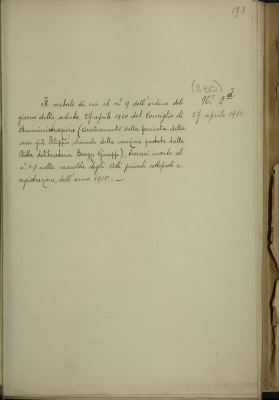 173
(280)
N.° 2d
27 aprile 1910
Il verbale di cui al n.° 9 dell'ordine del
giorno della seduta 27 aprile 1910 del Consiglio di
Amministrazione (Arretramento della facciata della
casa già Filippis, svincolo della cauzione portata dalla
Ditta deliberataria Bruzzi Giuseppe), trovasi inserto al
n.° 49 nella raccolta degli Atti privati sottoposti a
registrazione, dell'anno 1910. —